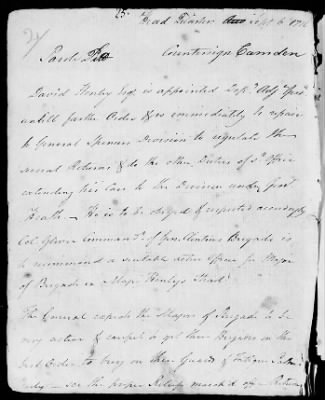 25
Head Quarters Sept 6 1776
Parole Pitt Countersign Camden
David Henly Esqr is appointed Depy Adjt Genl
untill farther Order & is immediately to repair
to General Spencers Division to regulate the
several Returns & do the other Duties of sd Office
extending his Care to the Division under Genl
Heath — He is to be obeyed & respected accordingly
Col Glover Commandt of Gen Clintons Brigade is
to recommend a suitable active Officer for Major
of Brigade in Majr Henlys Stead
The General expects the Majors of Brigade to be
very active & careful to get their Brigades in the
best Order to bring on their Guard & Fatigue Parties
early — see the proper Reliefs march'd off